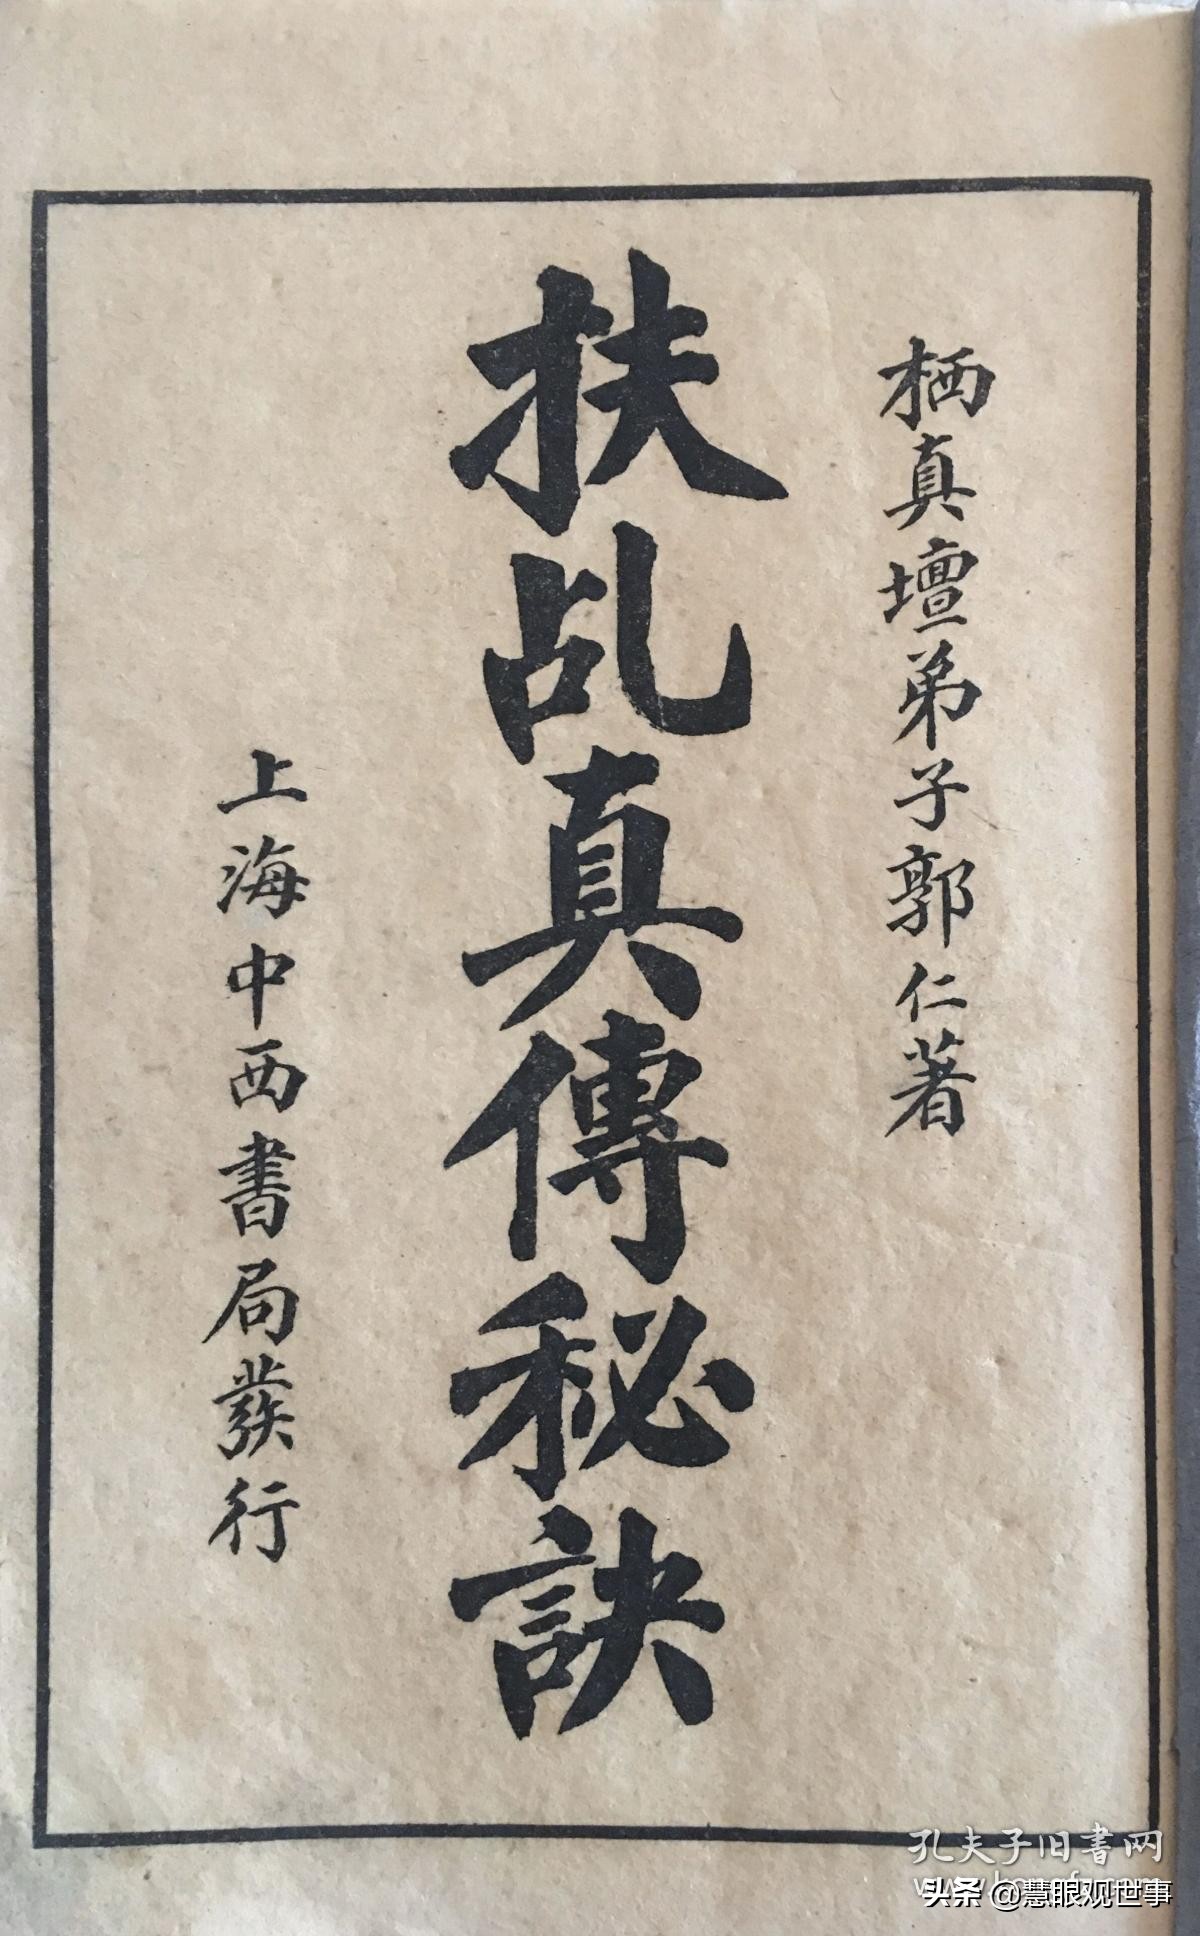 栖真壇弟子郭仁著
扶乩真傳秘訣
上海中西書局發行
孔夫子旧书网
头条 @慧眼观世事